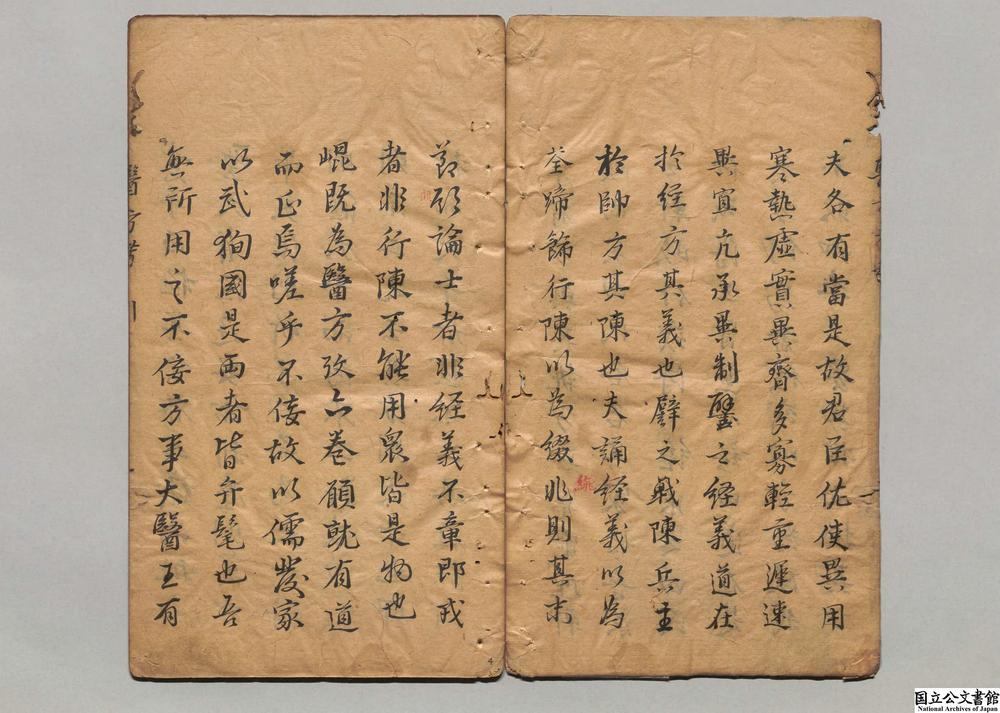 夫各有當是故君臣佐使異用
寒熱虛實異齊多寡輕重遲速
異宜亢承異制譬之經義道在
扵經方其義也譬之戰陳兵主
扵帥方其陳也夫誦經義以為
荃蹄飾行陳以為綴兆則其末
節顧論士者非經義不章即戎
者非行陳不能用衆皆是物也
崐既為醫方攷六卷願就有道
而正焉嗟乎不佞故以儒發家
以武狥國是兩者皆弁髦也吾
無所用之不佞方事大醫王有
醫方考
四
国立公文書館
National Archives of Japan